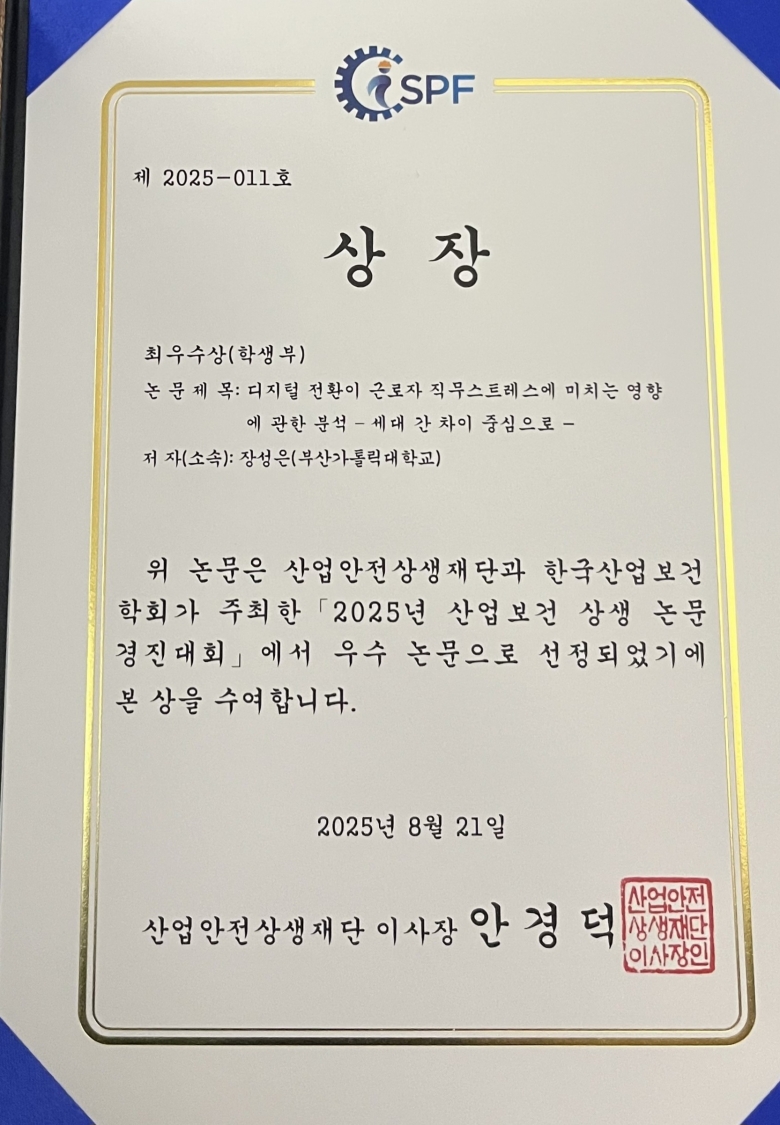 iSPF
제 2025-011호
상 장
최우수상(학생부)
논 문 제 목: 디지털 전환이 근로자 직무스트레스에 미치는 영향
에 관한 분석 - 세대 간 차이 중심으로 -
저 자(소속): 장성은(부산가톨릭대학교)
위 논문은 산업안전상생재단과 한국산업보건
학회가 주최한 「2025년 산업보건 상생 논문
경진대회」에서 우수 논문으로 선정되었기에
본 상을 수여합니다.
2025년 8월 21일
산업안전상생재단 이사장 안 경 덕
산업안전
상생재단
이사장인